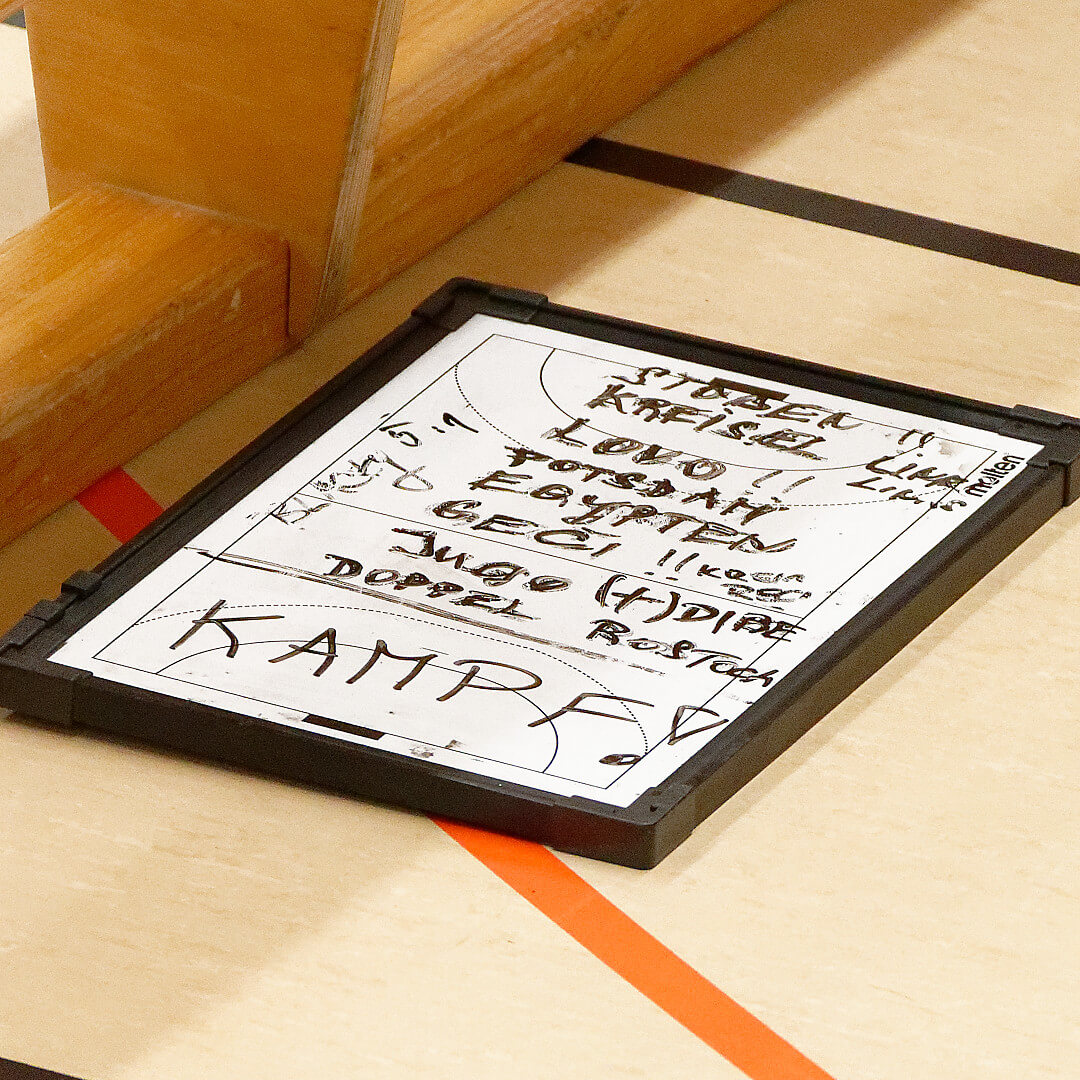 STOßEN !!
KREISEL
LOVO !!
POTSDAM
EGYPTEN
GECI !!
JUGO (+) DIBE
DOPPEL ROSTOCK
KAMPF !
5:1
molten